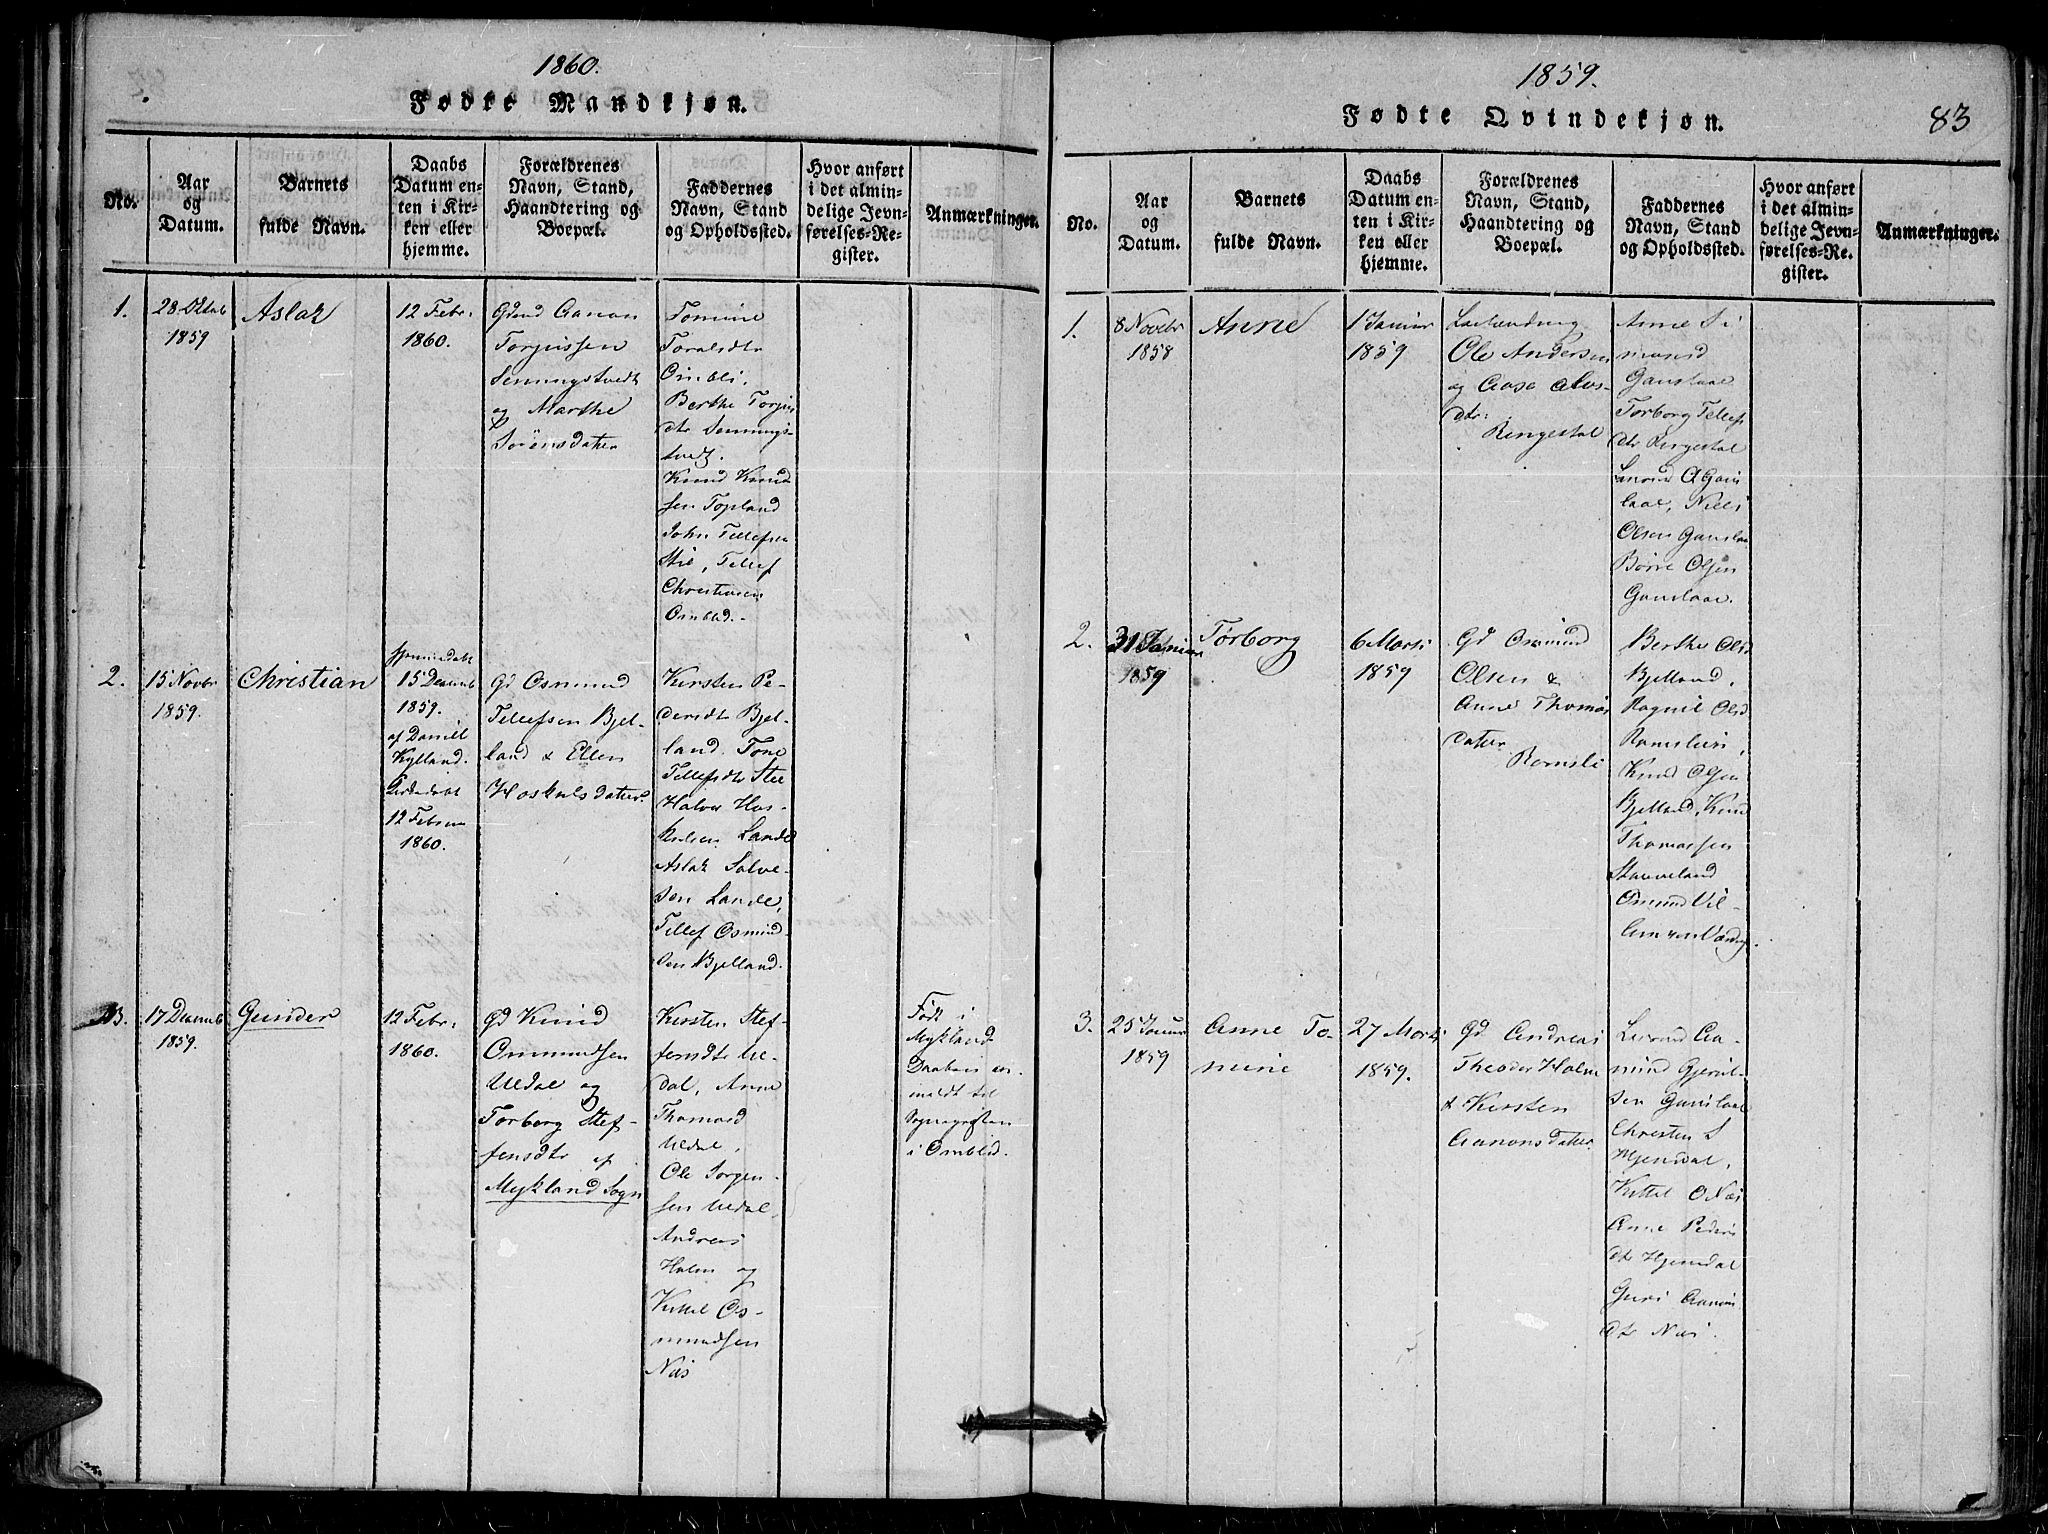 1860.
Fødte Mandkjøn.
No.
Aar
og
Datum.
Barnets
fulde Navn.
Daabs
Datum en-
ten i Kir-
ken eller
hjemme.
Forældrenes
Navn, Stand,
Haandtering og
Boepæl.
Faddernes
Navn, Stand
og Opholdssted.
Hvor anført
i det almin-
delige Jevn-
førelses-Re-
gister.
Anmærkninger.
1.
28 Oktob
1859
Aslak
12 Febr.
1860.
Gdmd Aanon
Torjussen
Senningstvedt
og Marthe
Sörensdatter
Tomine
Toralsdtr
Ombli.
Berthe Torjus
dtr Sennings-
tvedt.
Knud Knud
sen Topland
John Tellefsen
Stie, Tellef
Christensen
Omblid.
2.
15 Novbr
1859.
Christian
hjemmedøbt
15 Decemb
1859.
af Daniel
Kylland.
12 Febru
1860.
Gd Osmund
Tellefsen Bjel-
land & Ellen
Hoskuldsdatter
Kirsten Pe-
dersdtr Bjel-
land. Tone
Tellefsdtr Stie
Halvor Hos-
kulsen Lande
Aslak Salve-
sen Lande,
Tellef Osmund-
sen Bjelland.
3.
17 Decemb
1859.
Gunder
12 Febr.
1860.
Gd Knud
Ommundsen
Uedal og
Torborg Stef-
fensdtr af
Mykland Sogn
Kirsten Stef-
fensdtr Ue-
dal, Anne
Thomasd
Uedal,
Ole Jorgen-
sen Uedal,
Andreas
Holm og
Kittel Os-
mundsen
Næs
Født i
Mykland
Daaben an-
meldt til
Sognepresten
i Omblid.
1859.
Fødte Qvindekjøn.
83
No.
Aar
og
Datum.
Barnets
fulde Navn.
Daabs
Datum en-
ten i Kir-
ken eller
hjemme.
Forældrenes
Navn, Stand,
Haandtering og
Boepæl.
Faddernes
Navn, Stand
og Opholdssted.
Hvor anført
i det almin-
delige Jevn-
førelses-Re-
gister.
Anmærkninger.
1.
8 Novebr
1858
Anne
1 Januar
1859
Ole Andersen
og Aase Alvs-
dtr:
Ringestal
Anne Si
monsd
Gauslaae
Torborg Tellefs
dtr Ringestal
laae, Niels
Olsen Gauslaa
Børre Olsen
Gauslaae.
2.
31 Januar
1859
Torborg
6 Marts
1859
Gd Osmund
Olsen &
Anne Thomas
datter
Ramsli
Berthe Olsd
Bjelland,
Ragnil Olsd
Ramsli,
Knud Olsen
Bjelland, Knud
Thomassen
Staaveland
Osmund Vil-
3.
25 Januar
1859
Anne To-
mine
27 Marts
1859.
Gd Andreas
Theodor Holm
& Kirsten
Aanonsdatter
mund Gjerul-
sen Gauslaae
Christen S
Hjemdal,
Kittel O Næs
Anne Peders
dtr Hjemdal
Guri Aanons
dtr Næs.